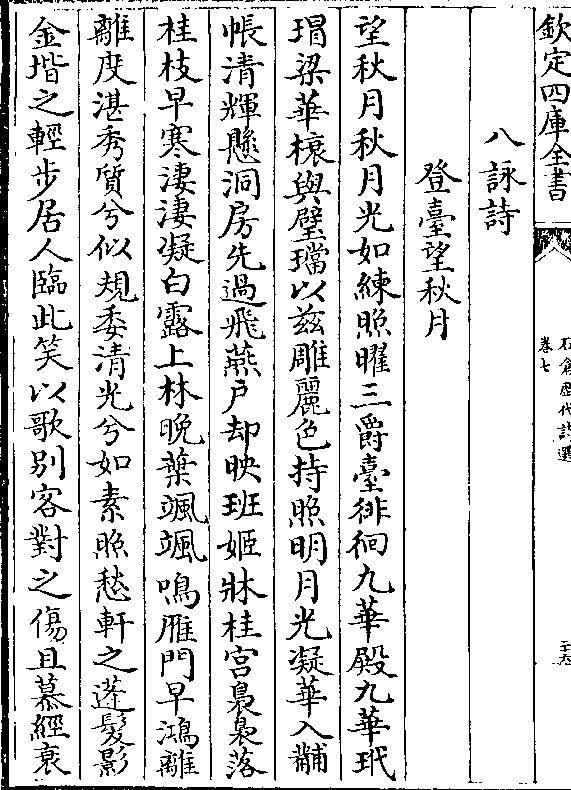 欽定四庫全書
石倉歷代詩選
卷七
八詠詩
登臺望秋月
望秋月秋月光如練照曜三爵臺徘徊九華殿九華玳
瑁梁華榱與璧璫以兹雕麗色持照明月光凝華入黼
帳清輝懸洞房先過飛燕户却映班姬牀桂宮裊裊落
桂枝早寒淒淒凝白露上林晚葉颯颯鳴雁門早鴻離
離度湛秀質兮似規委清光兮如素照愁軒之蓬髮影
金堦之輕步居人臨此笑以歌别客對之傷且慕經衰